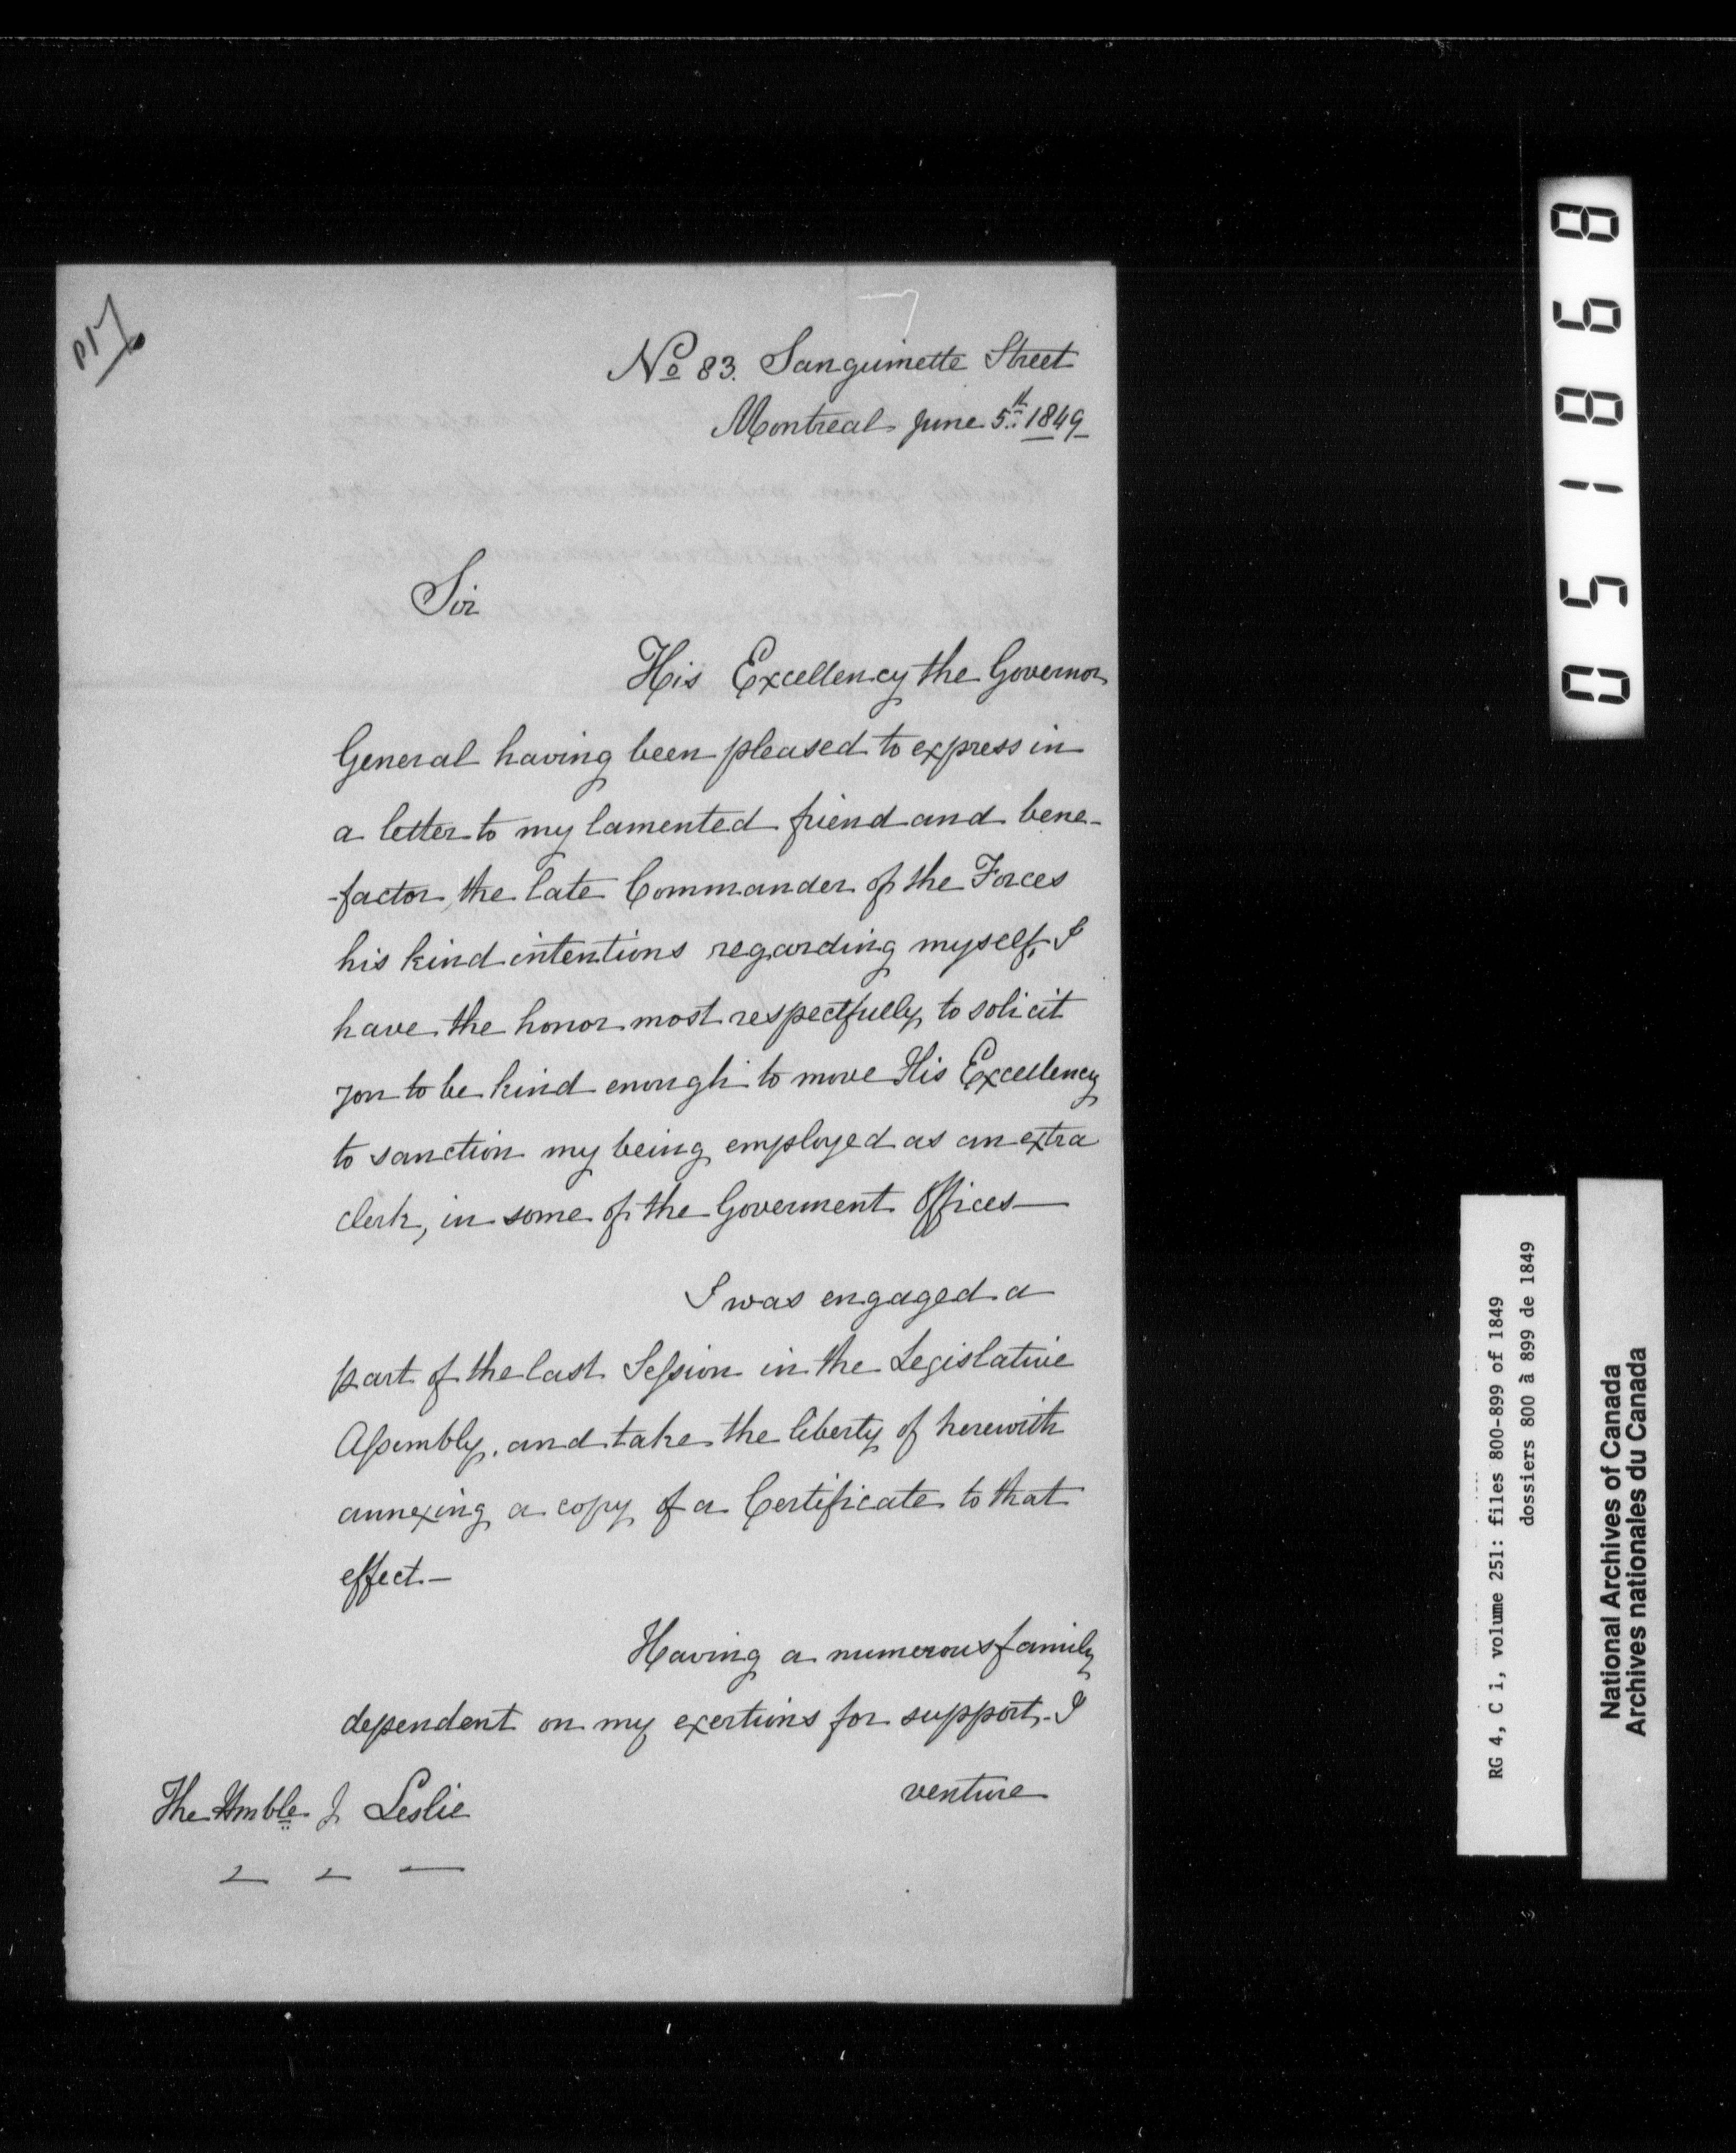 No 83. Sanguinette Street
Montreal June 5th 1849
Sir
His Excellency the Governor
General having been pleased to express in
a letter to my lamented friend and bene-
-factor, the late Commander of the Forces
his kind intentions regarding myself, I
have the honor most respectfully to solicit
you to be kind enough to move His Excellency
to sanction my being employed as an extra
clerk, in some of the Goverment Offices—
I was engaged a
part of the last Session in the Legislative
Assembly, and take the liberty of herewith
annexing a copy of a Certificate to that
effect.—
Having a numerous family
dependent on my exertions for support, I
venture
The Honble J Leslie
051868
RG 4, C 1, volume 251: files 800-899 of 1849
dossiers 800 à 899 de 1849
National Archives of Canada
Archives nationales du Canada